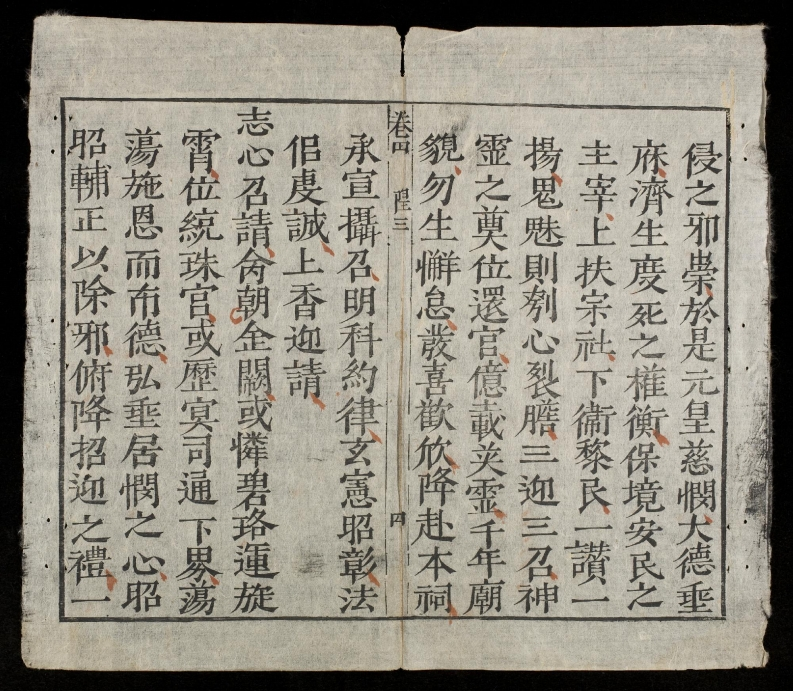 侵之邪祟於是元皇慈憫大德垂
庥濟生度死之權衡保境安民之
主宰上扶宗社下衞黎民一讃一
揚鬼魅則刳心裂膽三迎三召神
霊之奠位還官億載英霊千年廟
貌勿生懈怠叢喜歡欣降赴本祠
卷四 皇三
四
承宣攝召明科約律玄憲昭彰法
侣虔誠上香迎請
志心召請肏朝金闕或憐碧珞運旋
霄位統珠宫或歷冥司通下界蕩
蕩施恩而布德弘垂居憫之心昭
昭輔正以除邪俯降招迎之禮一